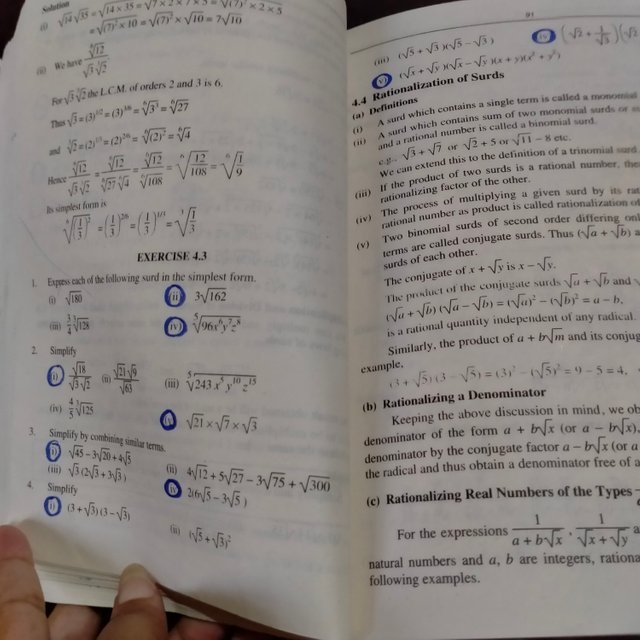 Solution
(i) √14 √35 = √14 × 35 = √7 × 2 × 7 × 5 = √(7)² × 2 × 5
= √(7)² × 10 = √(7)² × √10 = 7√10
(ii) We have ⁶√12 / √3 ³√2
For √3 ³√2 the L.C.M. of orders 2 and 3 is 6.
Thus √3 = (3)^1/2 = (3)^3/6 = ⁶√3³ = ⁶√27
and ³√2 = (2)^1/3 = (2)^2/6 = ⁶√(2)² = ⁶√4
Hence ⁶√12 / √3 ³√2 = ⁶√12 / ⁶√27 ⁶√4 = ⁶√12 / ⁶√108 = ⁶√12/108 = ⁶√1/9
Its simplest form is
⁶√(1/3)² = (1/3)^2/6 = (1/3)^1/3 = ³√1/3
EXERCISE 4.3
1. Express each of the following surd in the simplest form.
(i) √180 (ii) 3√162
(iii) 3/4 ³√128 (iv) ⁵√96x⁶y⁷z⁸
2. Simplify
(i) √18 / √3 √2 (ii) √21 √9 / √63 (iii) ⁵√243 x⁵ y¹⁰ z¹⁵
(iv) 4/5 ³√125 √21 × √7 × √3
3. Simplify by combining similar terms.
(i) √45 − 3√20 + 4√5 (ii) 4√12 + 5√27 − 3√75 + √300
(iii) √3 (2√3 + 3√3) 2(6√5 − 3√5)
4. Simplify
(i) (3 + √3) (3 − √3) (ii) (√5 + √3)²
91
(iii) (√5 + √3)(√5 − √3) (iv) (√2 + 1/√3)(√2
(v) (√x + √y)(√x − √y)(x + y)(x² + y²)
4.4 Rationalization of Surds
(a) Definitions
(i) A surd which contains a single term is called a monomial
(ii) A surd which contains sum of two monomial surds or
and a rational number is called a binomial surd.
e.g., √3 + √7 or √2 + 5 or √11 − 8 etc.
We can extend this to the definition of a trinomial surd.
(iii) If the product of two surds is a rational number, then
rationalizing factor of the other.
(iv) The process of multiplying a given surd by its
rational number as product is called rationalization of
(v) Two binomial surds of second order differing
terms are called conjugate surds. Thus (√a + √b) a
surds of each other.
The conjugate of x + √y is x − √y.
The product of the conjugate surds √a + √b and
(√a + √b) (√a − √b) = (√a)² − (√b)² = a − b,
is a rational quantity independent of any radical.
Similarly, the product of a + b√m and its
example,
(3 + √5) (3 − √5) = (3)² − (√5)² = 9 − 5 = 4,
(b) Rationalizing a Denominator
Keeping the above discussion in mind, we
denominator of the form a + b√x (or a − b√x),
denominator by the conjugate factor a − b√x (or a
the radical and thus obtain a denominator free of
(c) Rationalizing Real Numbers of the Types
For the expressions 1 / a + b√x , 1 / √x + √y
natural numbers and a, b are integers,
following examples.